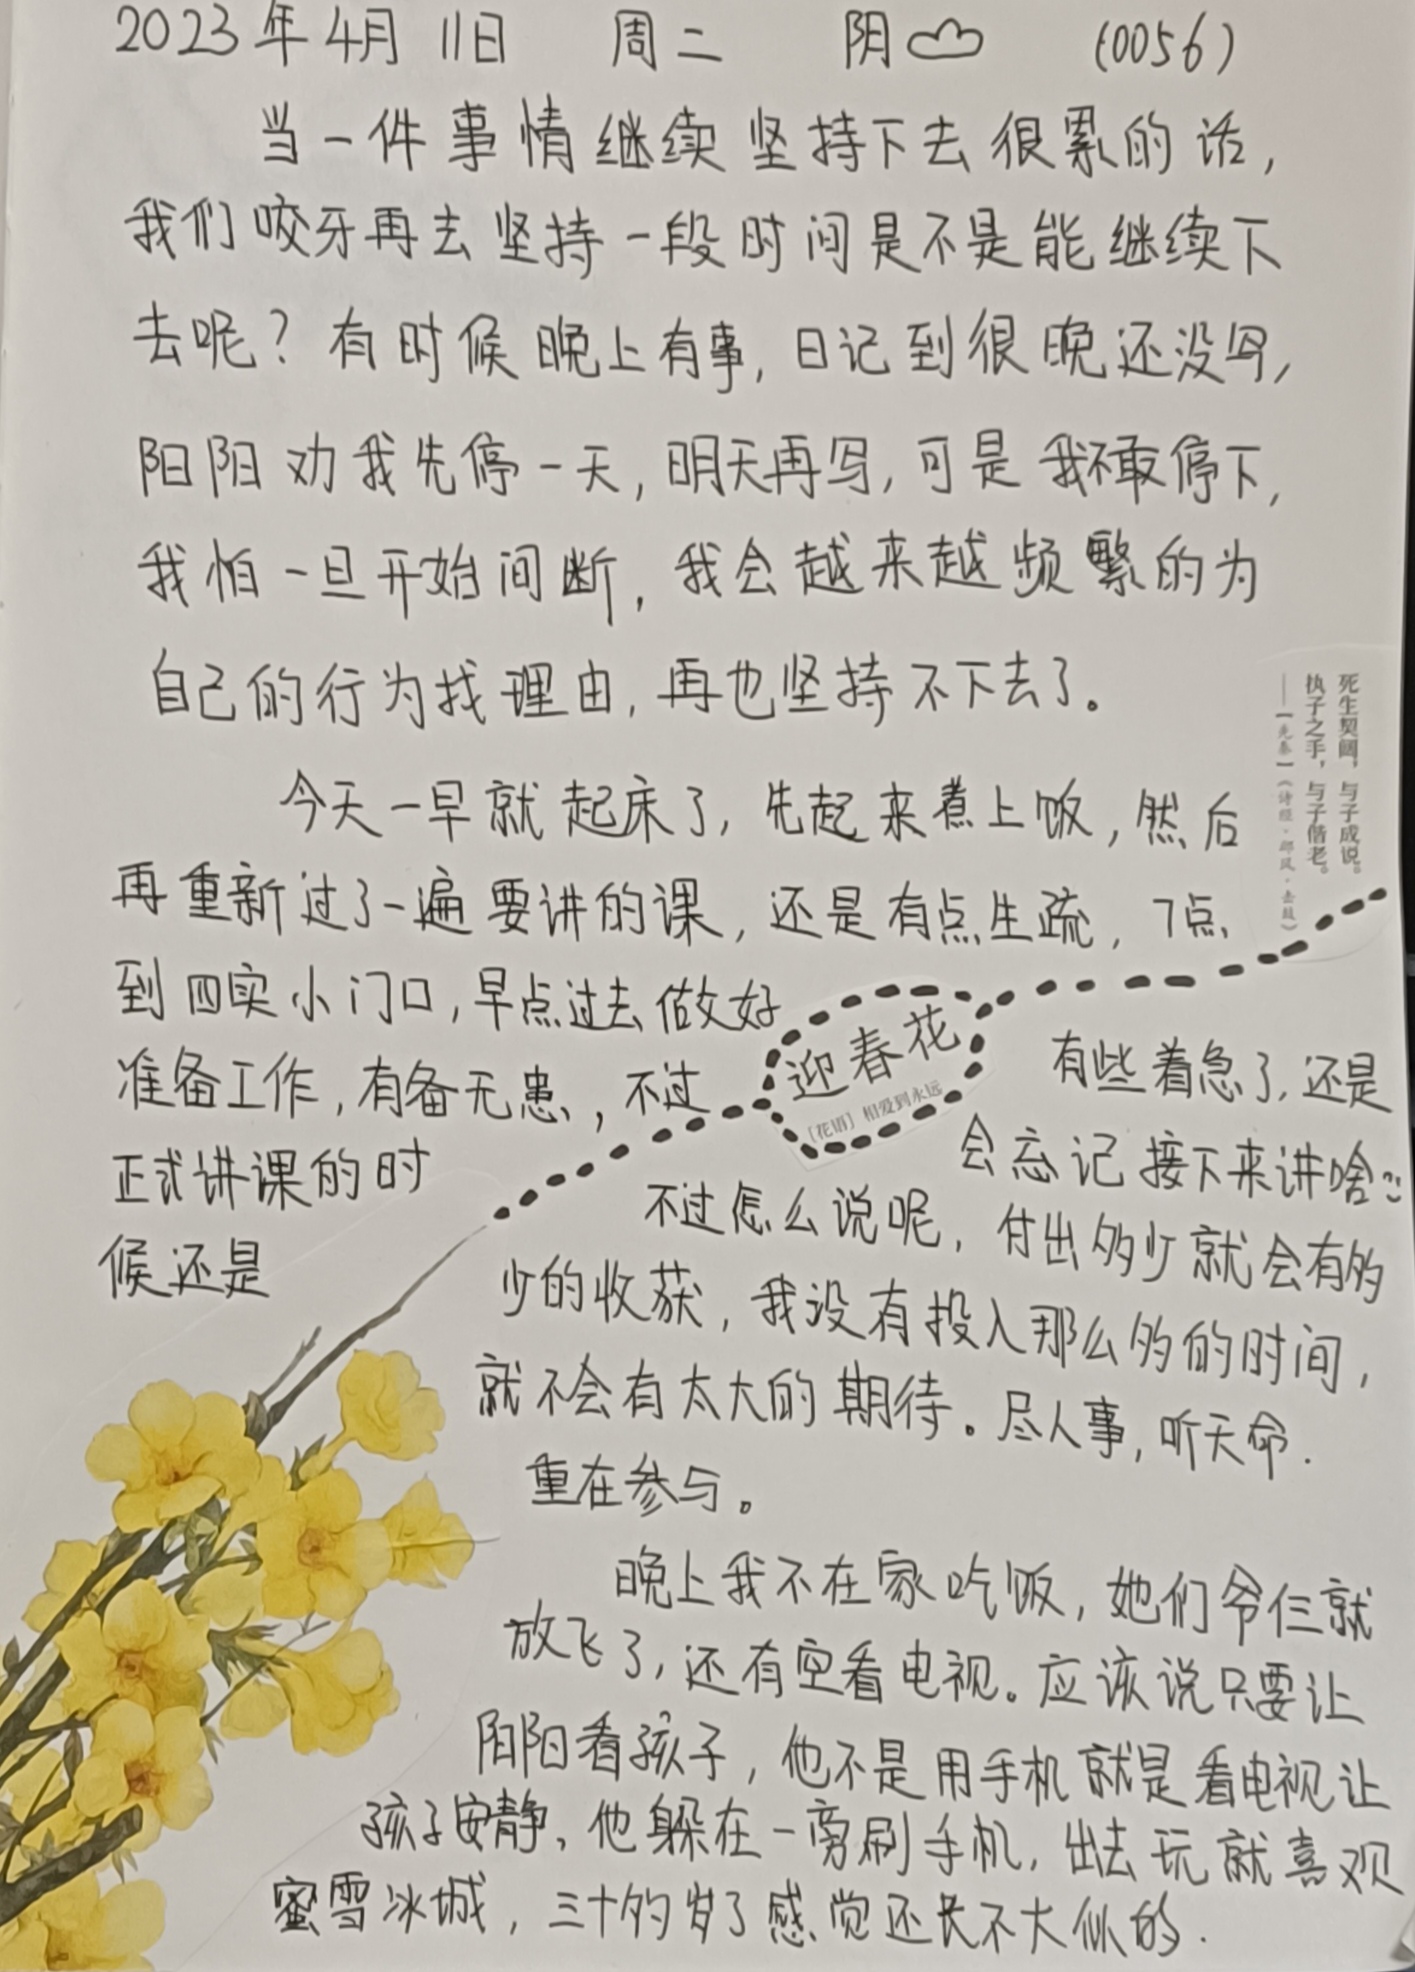 2023年4月11日 周二 阴 (0056)
当一件事情继续坚持下去很累的话,
我们咬牙再去坚持一段时间是不是能继续下
去呢?有时候晚上有事,日记到很晚还没写,
阳阳劝我先停一天,明天再写,可是我不敢停下,
我怕一旦开始间断,我会越来越频繁的为
自己的行为找理由,再也坚持不下去了。
死生契阔,与子成说。
执子之手,与子偕老。
——【先秦】《诗经·邶风·击鼓》
今天一早就起床了,先起来煮上饭,然后
再重新过了一遍要讲的课,还是有点生疏,7点
到四实小门口,早点过去做好
准备工作,有备无患,不过
正式讲课的时
候还是
迎春花
[花语] 相爱到永远
有些着急了,还是
会忘记接下来讲啥
不过怎么说呢,付出多少就会有多
少的收获,我没有投入那么多的时间,
就不会有太大的期待。尽人事,听天命.
重在参与。
晚上我不在家吃饭,她们爷仨就
放飞了,还有空看电视。应该说只要让
阳阳看孩子,他不是用手机就是看电视让
孩子安静,他躲在一旁刷手机,出去玩就喜欢
蜜雪冰城,三十多岁了感觉还长不大似的.